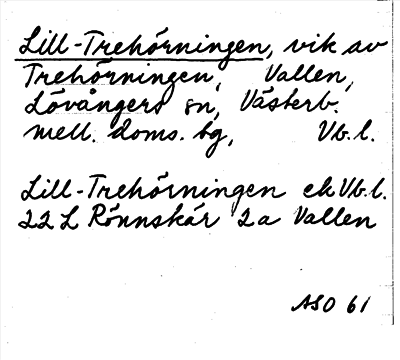 Lill-Trehörningen, vik av
Trehörningen, Vallen,
Lövångers sn, Västerb.
mell. doms. tg, Vb. l.
Lill-Trehörningen ek Vb. l.
22 L Rönnskär 2 a Vallen
ASO 61